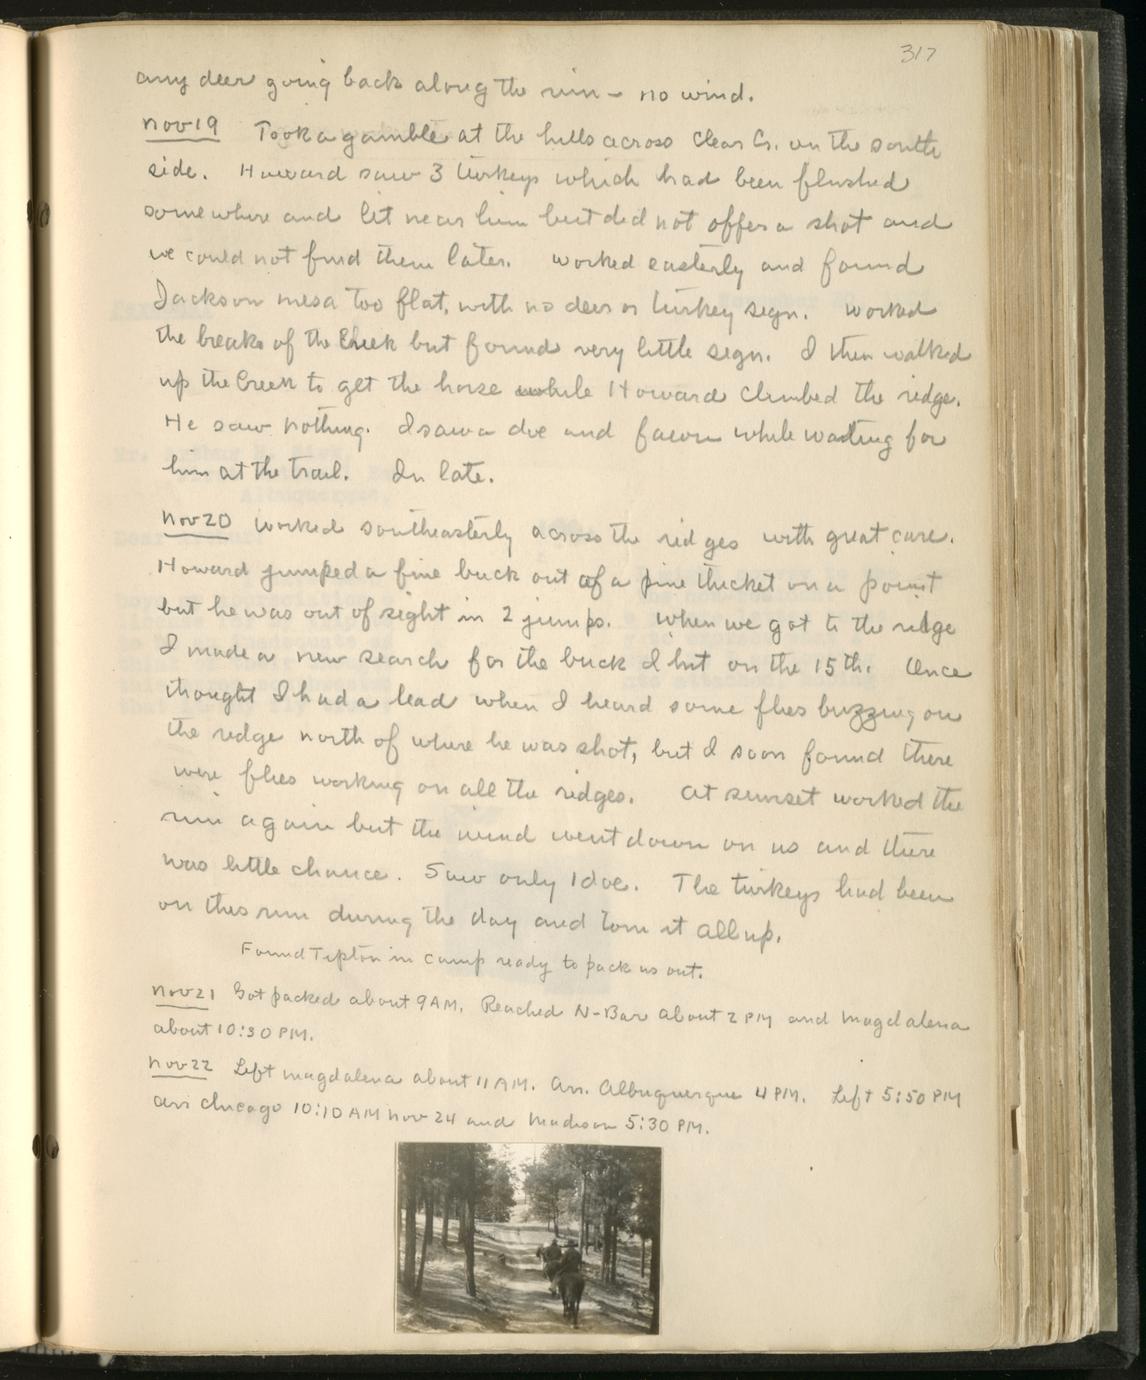 317
any deer going back along the rim - no wind.
Nov 19 Took a gamble at the hills across Clear Cr. on the south
side. Howard saw 3 turkeys which had been flushed
somewhere and lit near him but did not offer a shot and
we could not find them later. Worked easterly and found
Jackson mesa too flat, with no deer or turkey sign. Worked
the breaks of the Creek but found very little sign. I then walked
up the Creek to get the horse while Howard climbed the ridge.
He saw nothing. I saw a doe and fawn while waiting for
him at the trail. In late.
Nov 20 Worked southeasterly across the ridges with great care.
Howard jumped a fine buck out of a pine thicket on a point
but he was out of sight in 2 jumps. When we got to the ridge
I made a new search for the buck I hit on the 15th. Once
thought I had a lead when I heard some flies buzzing on
the ridge north of where he was shot, but I soon found there
were flies working on all the ridges. At sunset worked the
rim again but the wind went down on us and there
was little chance. Saw only 1 doe. The turkeys had been
on this rim during the day and torn it all up.
Found Tipton in camp ready to pack us out.
Nov 21 Got packed about 9 AM. Reached N-Bar about 2 PM and Magdalena
about 10:30 PM.
Nov 22 Left Magdalena about 11 AM. Arr. Albuquerque 4 PM. Left 5:50 PM
arr Chicago 10:10 AM Nov 24 and Madison 5:30 PM.